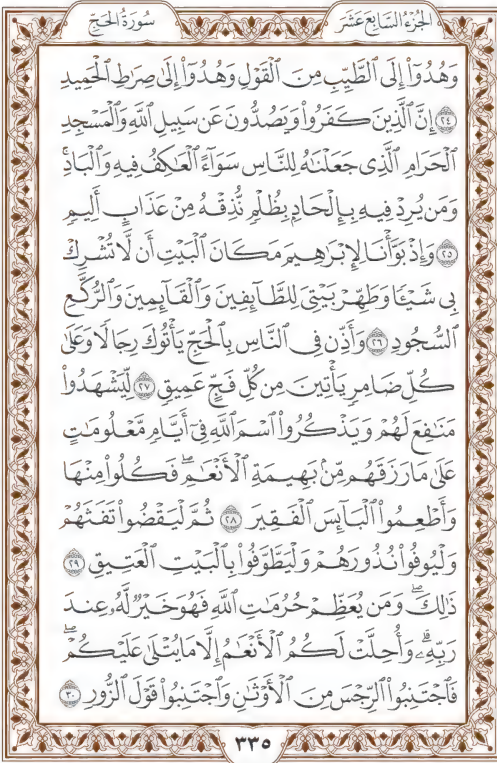 سُورَةُ الحَجِّ
الجُزْءُ السَّابِعَ عَشَرَ
وَهُدُوٓاْ إِلَى ٱلطَّيِّبِ مِنَ ٱلْقَوْلِ وَهُدُوٓاْ إِلَىٰ صِرَٰطِ ٱلْحَمِيدِ
٢٤ إِنَّ ٱلَّذِينَ كَفَرُواْ وَيَصُدُّونَ عَن سَبِيلِ ٱللَّهِ وَٱلْمَسْجِدِ
ٱلْحَرَامِ ٱلَّذِى جَعَلْنَٰهُ لِلنَّاسِ سَوَآءً ٱلْعَٰكِفُ فِيهِ وَٱلْبَادِ ۚ
وَمَن يُرِدْ فِيهِ بِإِلْحَادٍۭ بِظُلْمٍ نُّذِقْهُ مِنْ عَذَابٍ أَلِيمٍ
٢٥ وَإِذْ بَوَّأْنَا لِإِبْرَٰهِيمَ مَكَانَ ٱلْبَيْتِ أَن لَّا تُشْرِكْ
بِى شَيْـًٔا وَطَهِّرْ بَيْتِىَ لِلطَّآئِفِينَ وَٱلْقَآئِمِينَ وَٱلرُّكَّعِ
ٱلسُّجُودِ ٢٦ وَأَذِّن فِى ٱلنَّاسِ بِٱلْحَجِّ يَأْتُوكَ رِجَالًا وَعَلَىٰ
كُلِّ ضَامِرٍ يَأْتِينَ مِن كُلِّ فَجٍّ عَمِيقٍ ٢٧ لِّيَشْهَدُواْ
مَنَٰفِعَ لَهُمْ وَيَذْكُرُواْ ٱسْمَ ٱللَّهِ فِىٓ أَيَّامٍ مَّعْلُومَٰتٍ
عَلَىٰ مَا رَزَقَهُم مِّنۢ بَهِيمَةِ ٱلْأَنْعَٰمِ ۖ فَكُلُواْ مِنْهَا
وَأَطْعِمُواْ ٱلْبَآئِسَ ٱلْفَقِيرَ ٢٨ ثُمَّ لْيَقْضُواْ تَفَثَهُمْ
وَلْيُوفُواْ نُذُورَهُمْ وَلْيَطَّوَّفُواْ بِٱلْبَيْتِ ٱلْعَتِيقِ ٢٩
ذَٰلِكَ ۖ وَمَن يُعَظِّمْ حُرُمَٰتِ ٱللَّهِ فَهُوَ خَيْرٌ لَّهُۥ عِندَ
رَبِّهِۦ ۗ وَأُحِلَّتْ لَكُمُ ٱلْأَنْعَٰمُ إِلَّا مَا يُتْلَىٰ عَلَيْكُمْ ۖ
فَٱجْتَنِبُواْ ٱلرِّجْسَ مِنَ ٱلْأَوْثَٰنِ وَٱجْتَنِبُواْ قَوْلَ ٱلزُّورِ ٣٠
٣٣٥